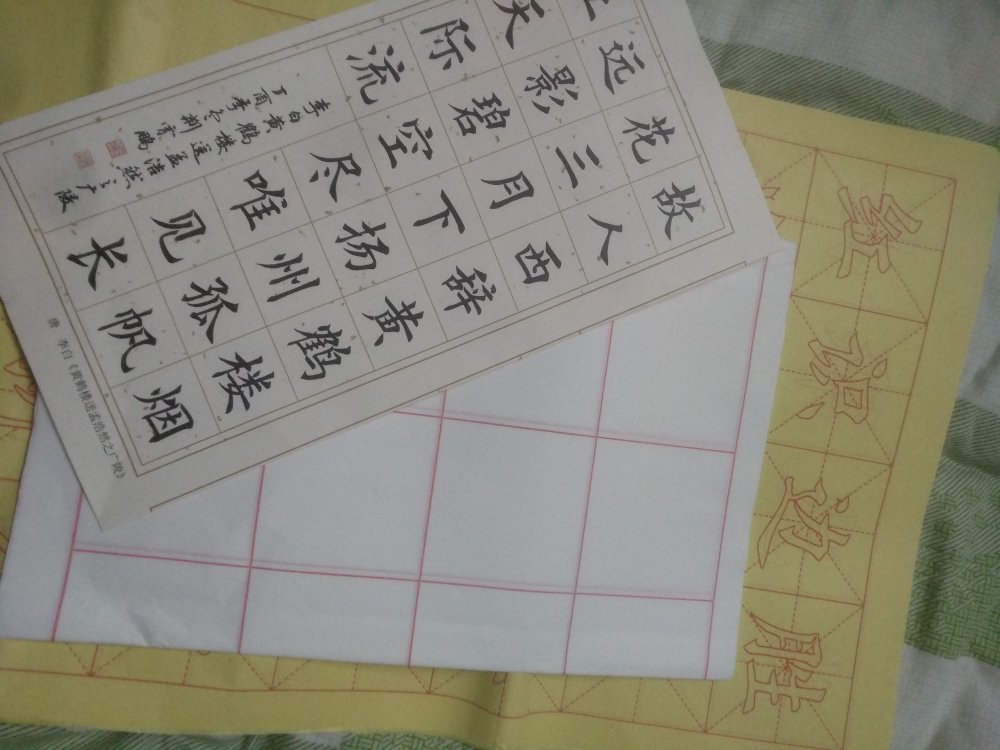 故人西辞黄鹤楼烟
花三月下扬州孤帆
远影碧空尽唯见长
天际流
李白黄鹤楼送孟浩然之广陵
丁酉季荆霄鹏
唐 李白《黄鹤楼送孟浩然之广陵》
胜
边
识
红